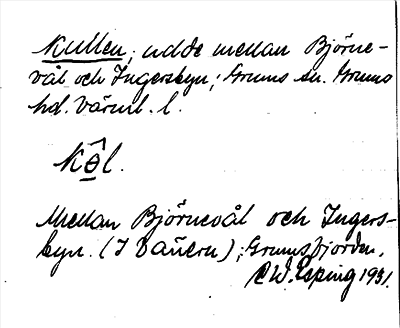 Kullen, udde mellan Björne-
vål och Ingersbyn; Grums sn. Grums
hd. Värml. l.
Kɵ̂l.
Mellan Björnevål och Ingers-
byn. (I Vänern); Grumsfjorden.
C W. Esping 1931.